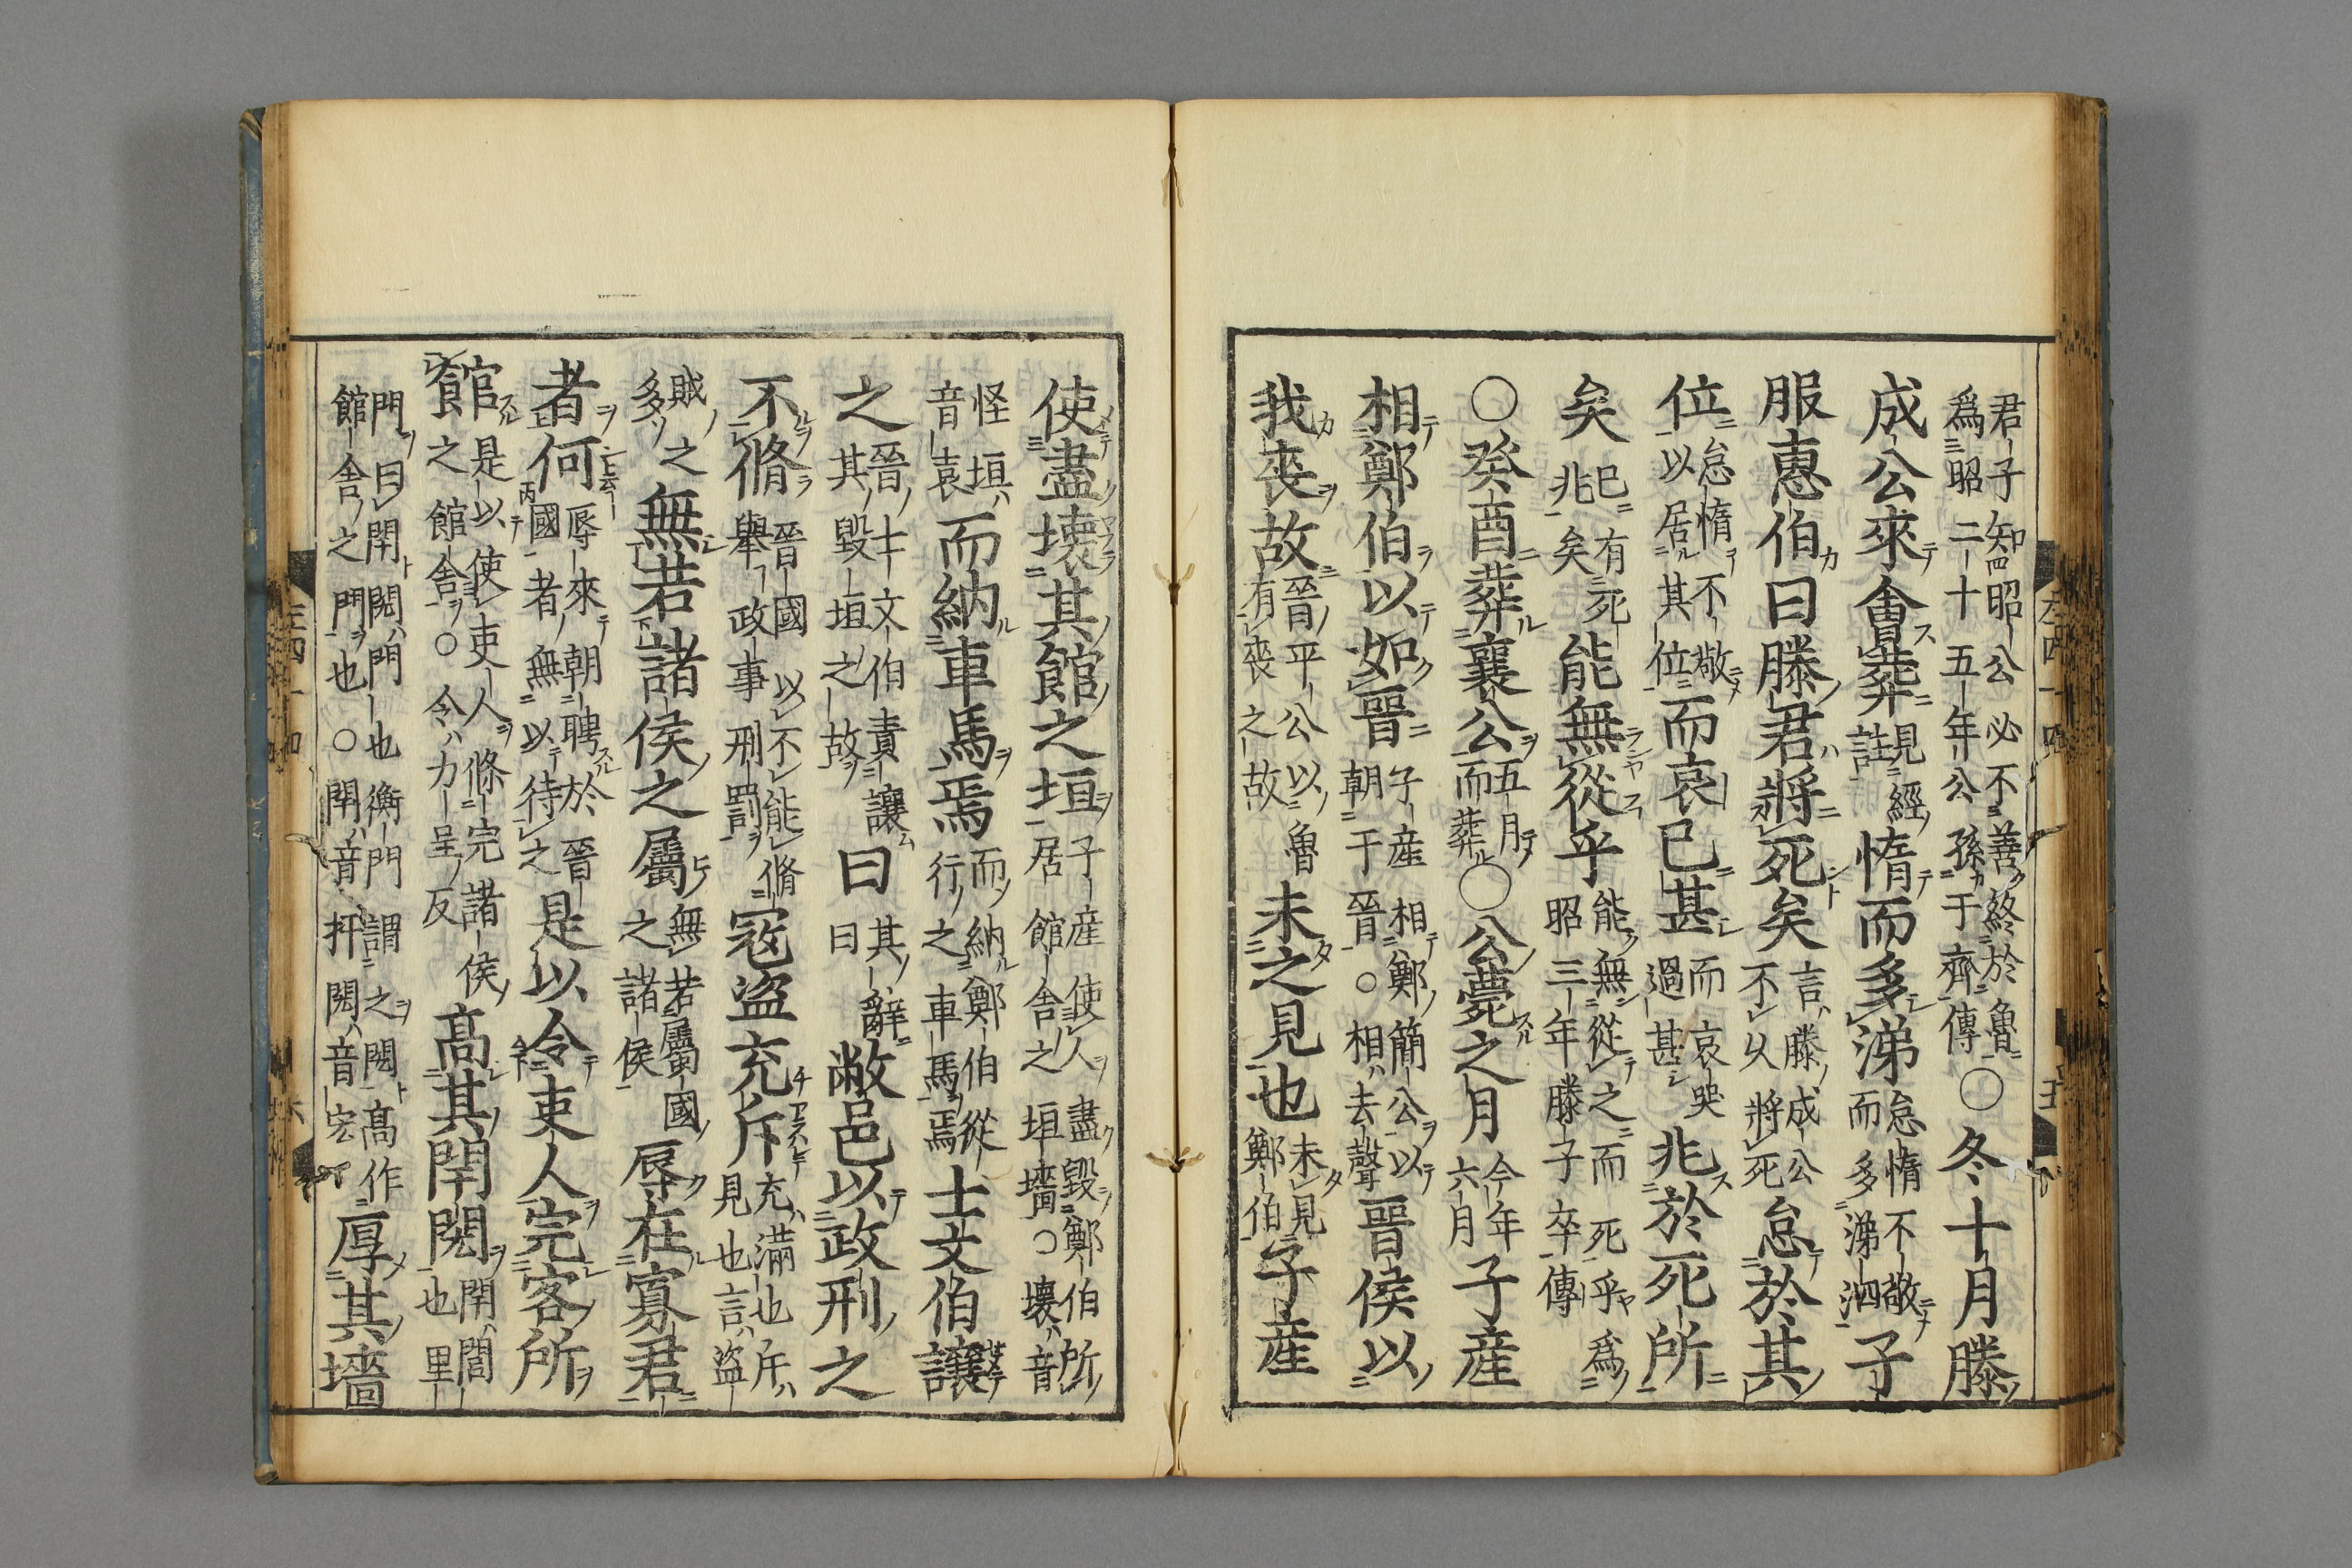 君子知昭公必不善終於魯
爲昭二十五年公孫于齊傳
〇冬十月滕
成公來會葬
見經
註
惰而多涕
怠惰不敬
而多涕泗
子
服惠伯曰滕君將死矣
言滕成公
不久將死
怠於其
位
怠惰不敬
以居其位
而哀已甚
而哀哭
過甚
兆於死所
矣
已有死
兆矣
能無從乎
能無從之而死乎爲
昭三年滕子卒傳
〇癸酉葬襄公
五月
而葬
〇公薨之月
今年
六月
子產
相鄭伯以如晉
子產相鄭簡公以
朝于晉〇相去聲
晉侯以
我喪故
晉平公以魯
有喪之故
未之見也
未見
鄭伯
子產
使盡壞其館之垣
子產使人盡毀鄭伯所
居館舍之垣墻〇壞音
怪垣
音袁
而納車馬焉
而納鄭伯從
行之車馬焉
士文伯讓
之
晉士文伯責讓
其毀垣之故
曰
其辭
曰
敝邑以政刑之
不脩
晉國以不能脩
舉政事刑罰
寇盜充斥
充滿也斥
見也言盜
賊之
多
無若諸侯之屬
無若屬國
之諸侯
辱在寡君
者何
辱來朝聘於晉
國者無以待之
是以令吏人完客所
館
是以使吏人條完諸侯
之館舍〇令力呈反
高其閈閎
閈閭
也里
門曰閈閎門也衡門謂之閎高作
館舍之門也〇閈音扞閎音宏
厚其墻